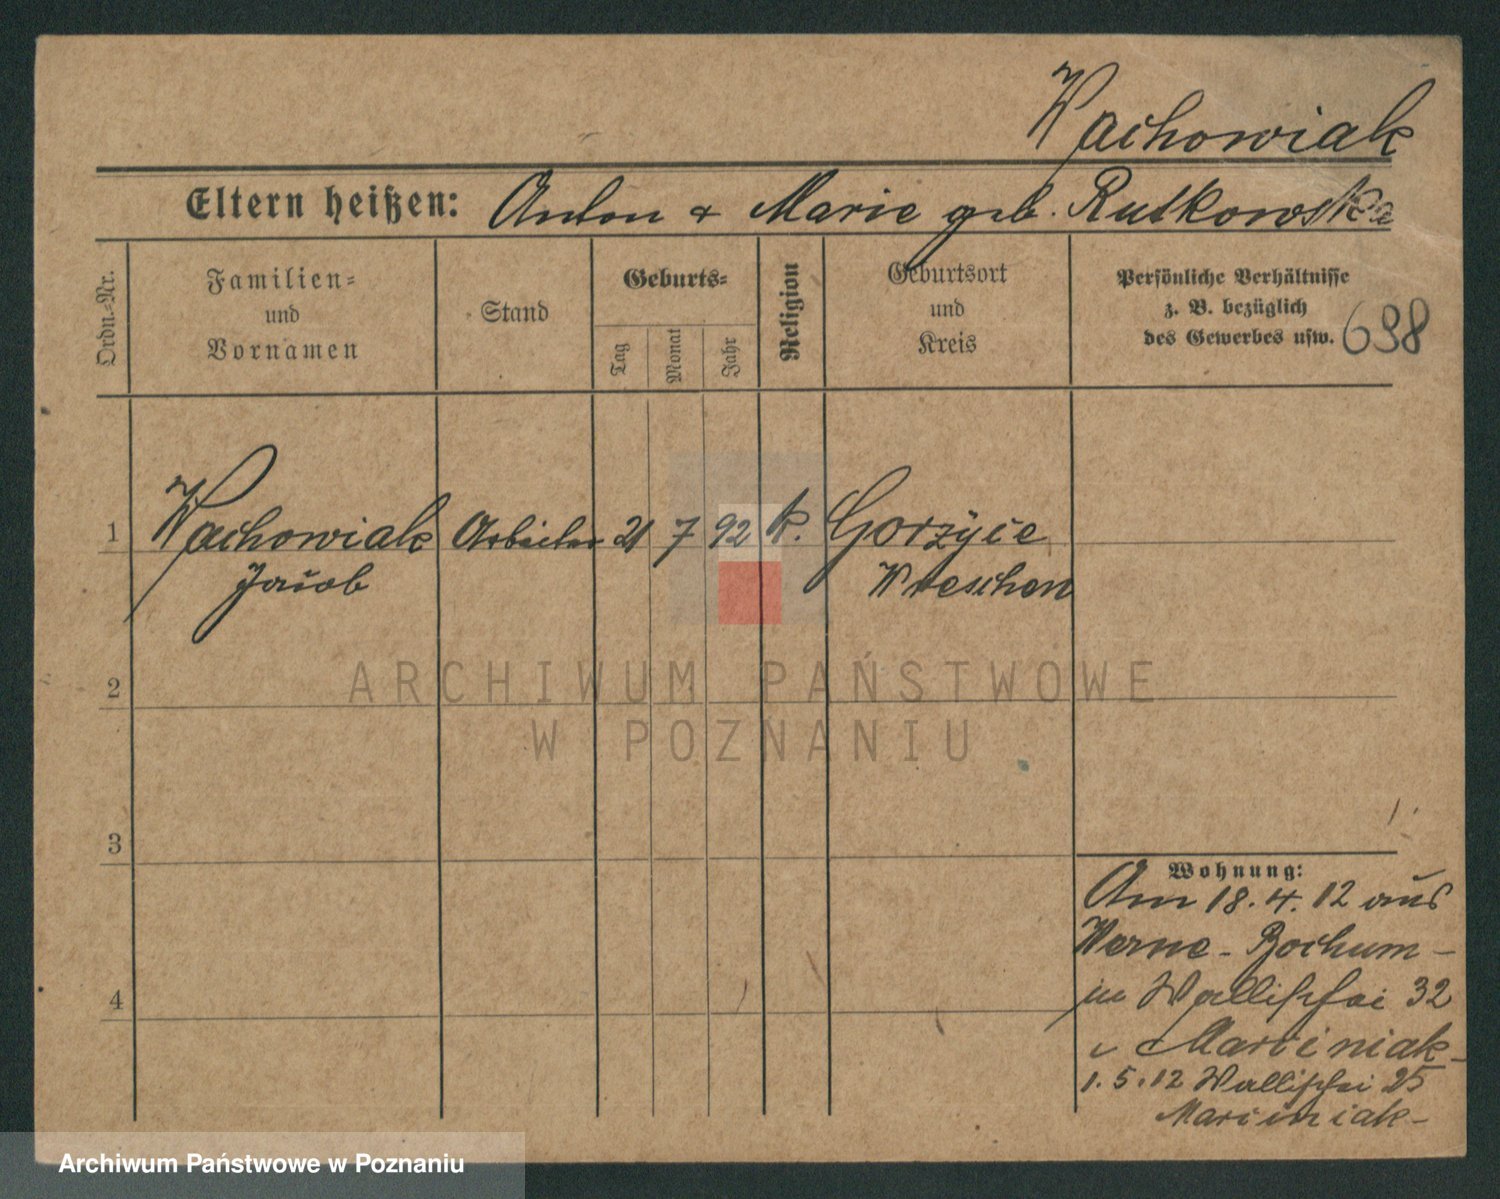 Wachowiak
Eltern heißen: Anton & Marie geb. Rutkowska
Ordn.-Nr.
Familien-
und
Vornamen
Stand
Geburts-
Tag
Monat
Jahr
Religion
Geburtsort
und
Kreis
Persönliche Verhältnisse
z. B. bezüglich
des Gewerbes usw.
698
1 Wachowiak Arbeiter 21 7 92 k. Gorzyce
Jacob Wreschen
ARCHIWUM PAŃSTWOWE
W POZNANIU
2
3
4
Wohnung:
Am 18. 4. 12 aus
Werne - Bochum -
in Wallischei 32
Marciniak -
1. 5. 12 Wallischei 25
Marciniak -
Archiwum Państwowe w Poznaniu